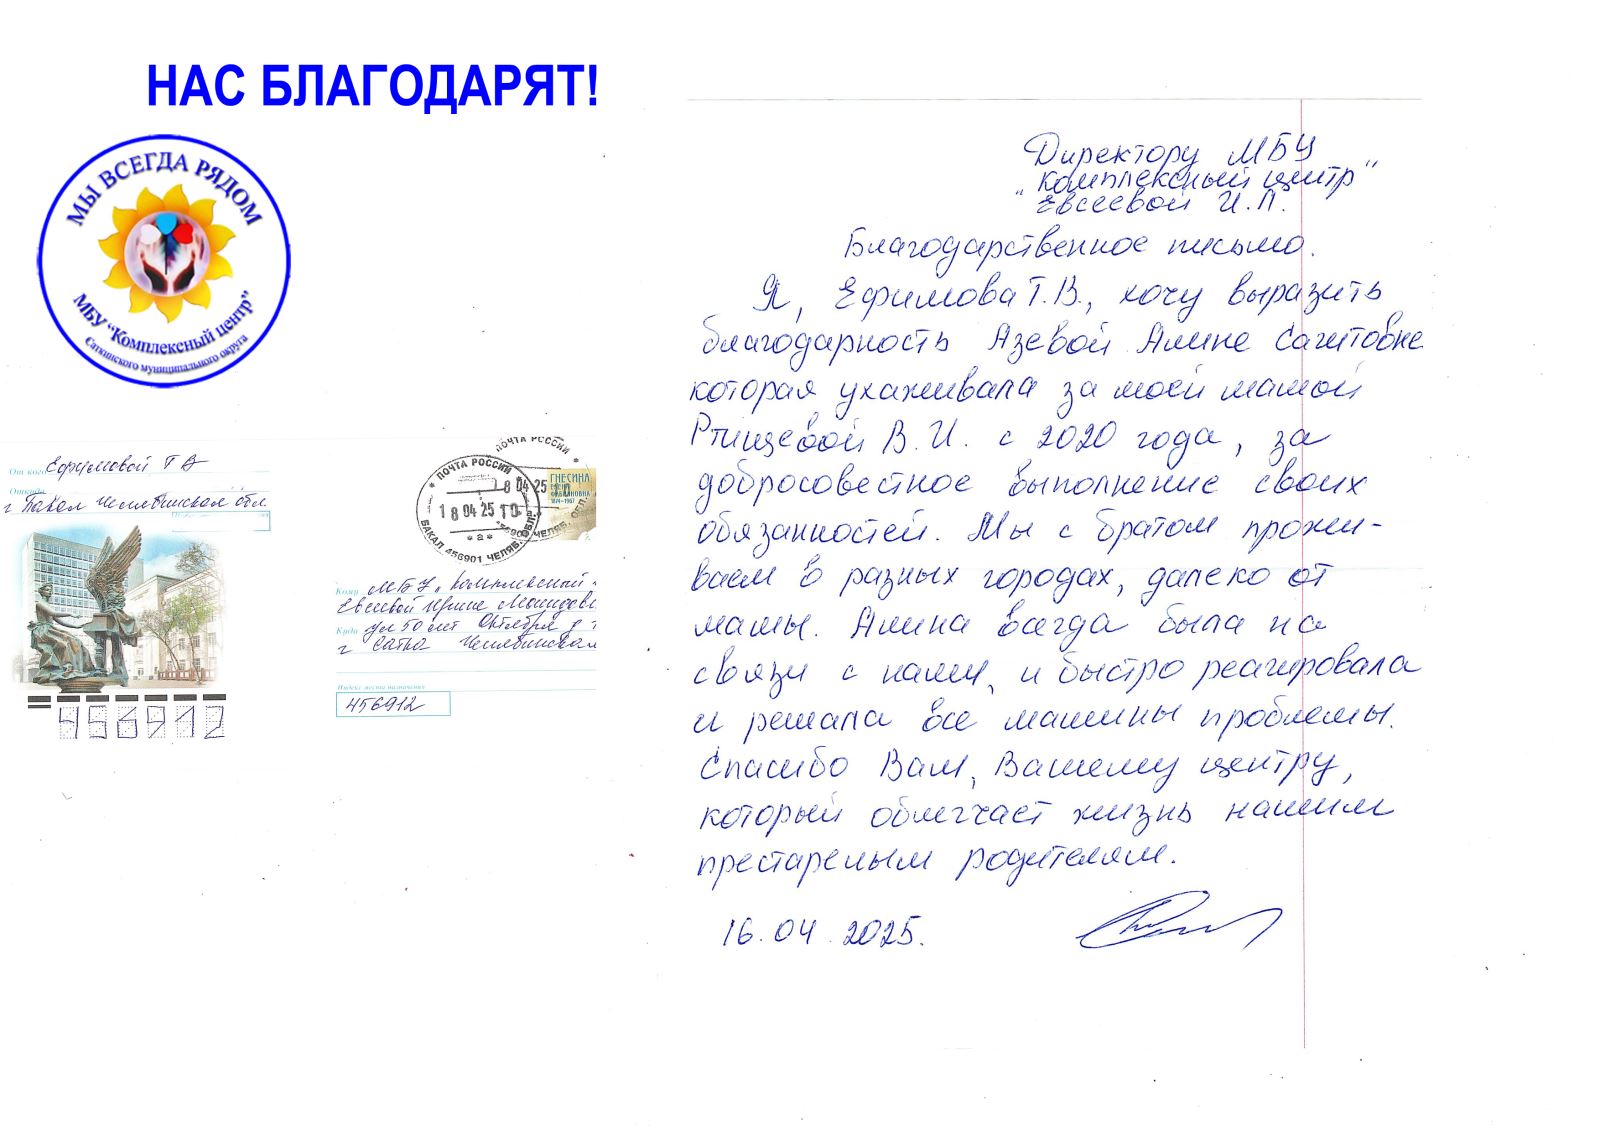 НАС БЛАГОДАРЯТ!
МЫ ВСЕГДА РЯДОМ
МБУ "Комплексный центр"
Саткинского муниципального округа
От кого Ефимовой Т В
Откуда
г Бакал Челябинская обл.
ПОЧТА РОССИИ
ПОЧТА РОССИИ
8 04 25
18 04 25 10
*а*
БАКАЛ 456901 ЧЕЛЯБ. ОБЛ.
ГНЕСИНА
ЕЛЕНА
ФАБИАНОВНА
1874-1967
Кому МБУ "Комплексный
Евсеевой Ирине
Куда ул 50 лет Октября д
г Сатка Челябинская
Индекс места назначения
456912
456912
Директору МБУ
"Комплексный центр"
Евсеевой И.Л.
Благодарственное письмо.
Я, Ефимова Т.В., хочу выразить
благодарность Азевой Алине Сагитовне
которая ухаживала за моей мамой
Ртищевой В.И. с 2020 года, за
добросовестное выполнение своих
обязанностей. Мы с братом прожи-
ваем в разных городах, далеко от
мамы. Алина всегда была на
связи с нами, и быстро реагировала
и решала все мамины проблемы.
Спасибо Вам, Вашему центру,
который облегчает жизнь нашим
престарелым родителям.
16.04.2025.